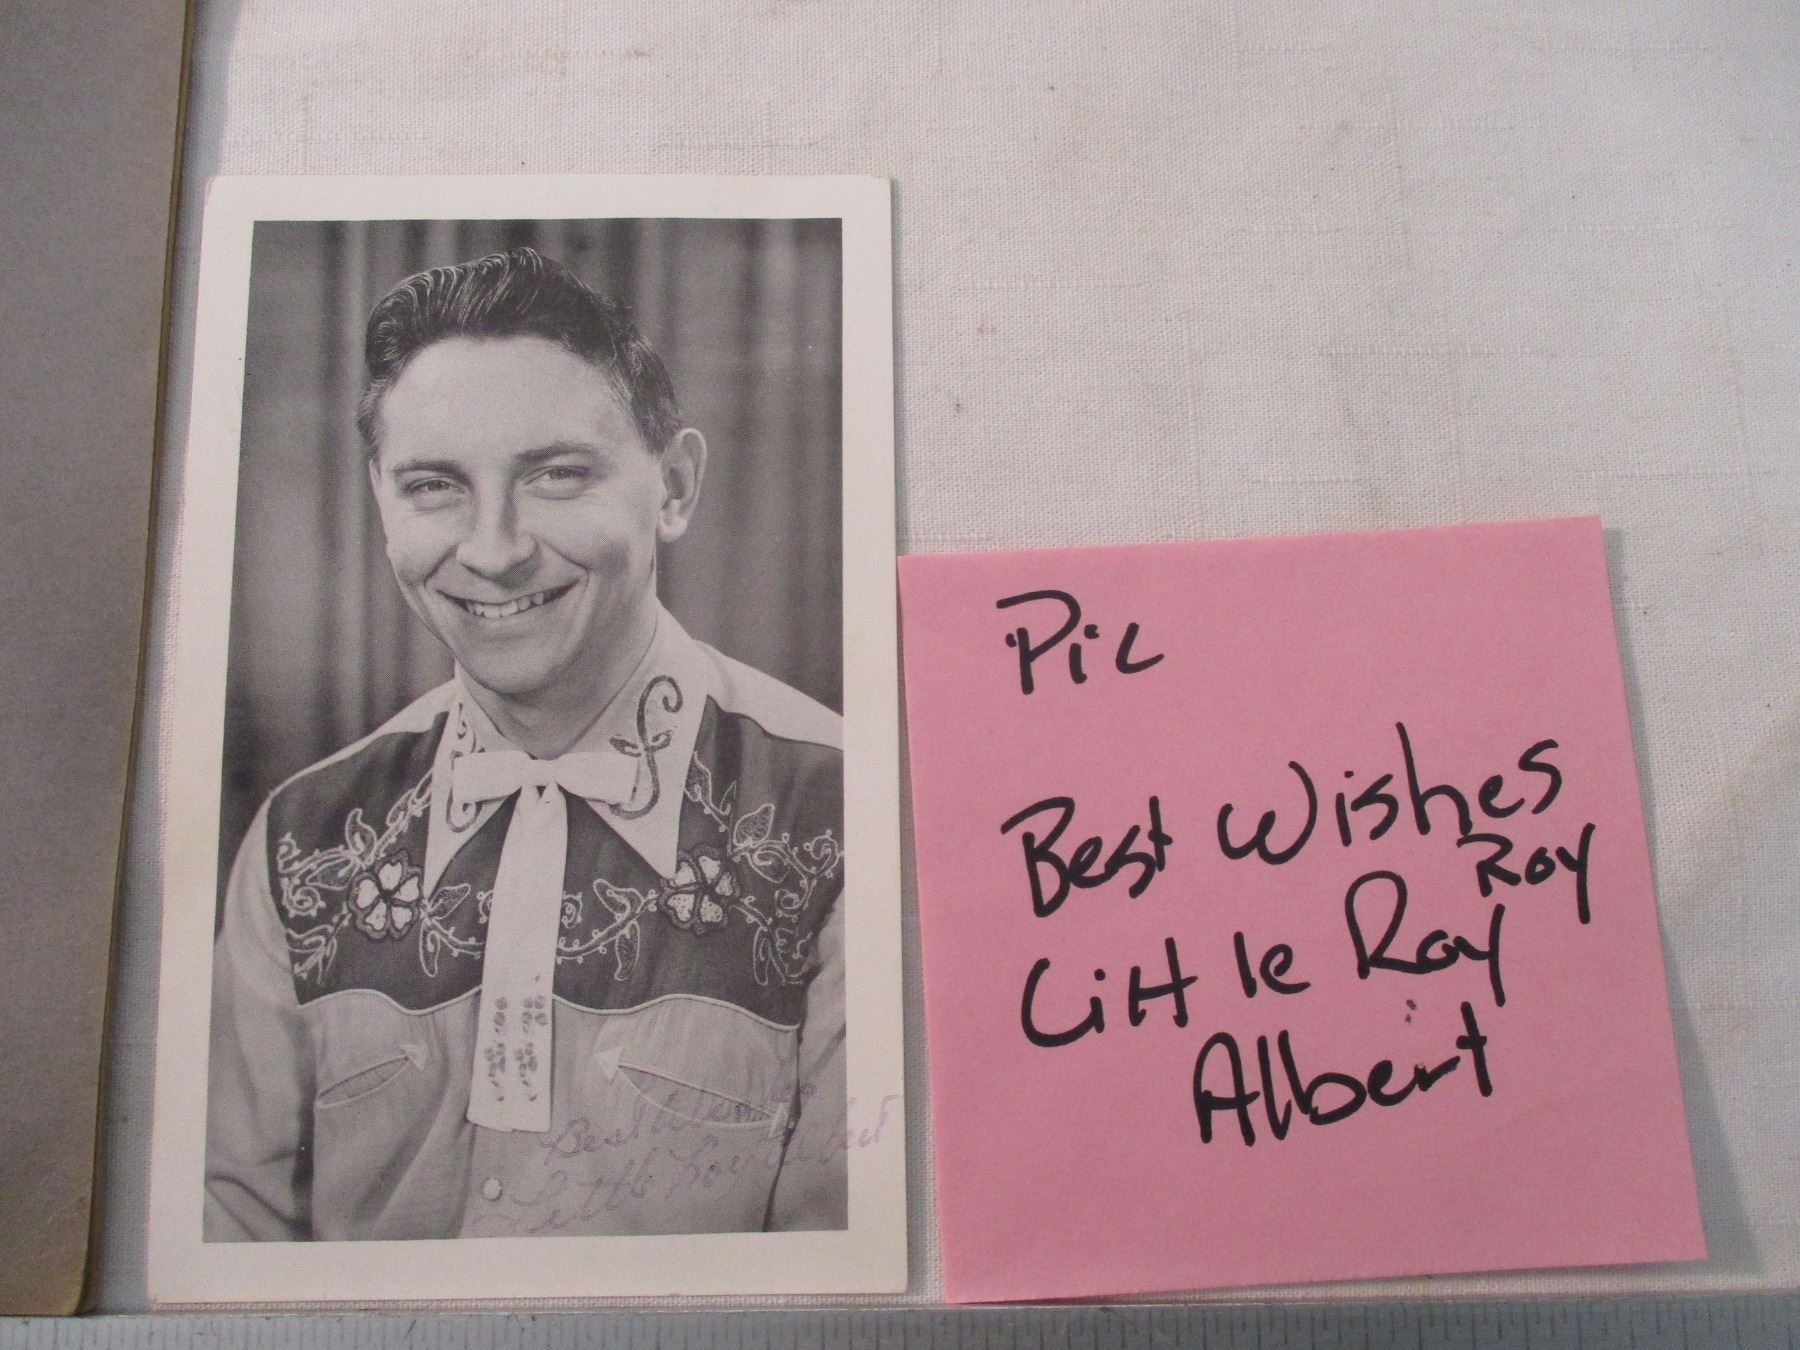 Best Wishes
Little Roy Albert
Pic
Best Wishes
Roy
Little Roy
Albert